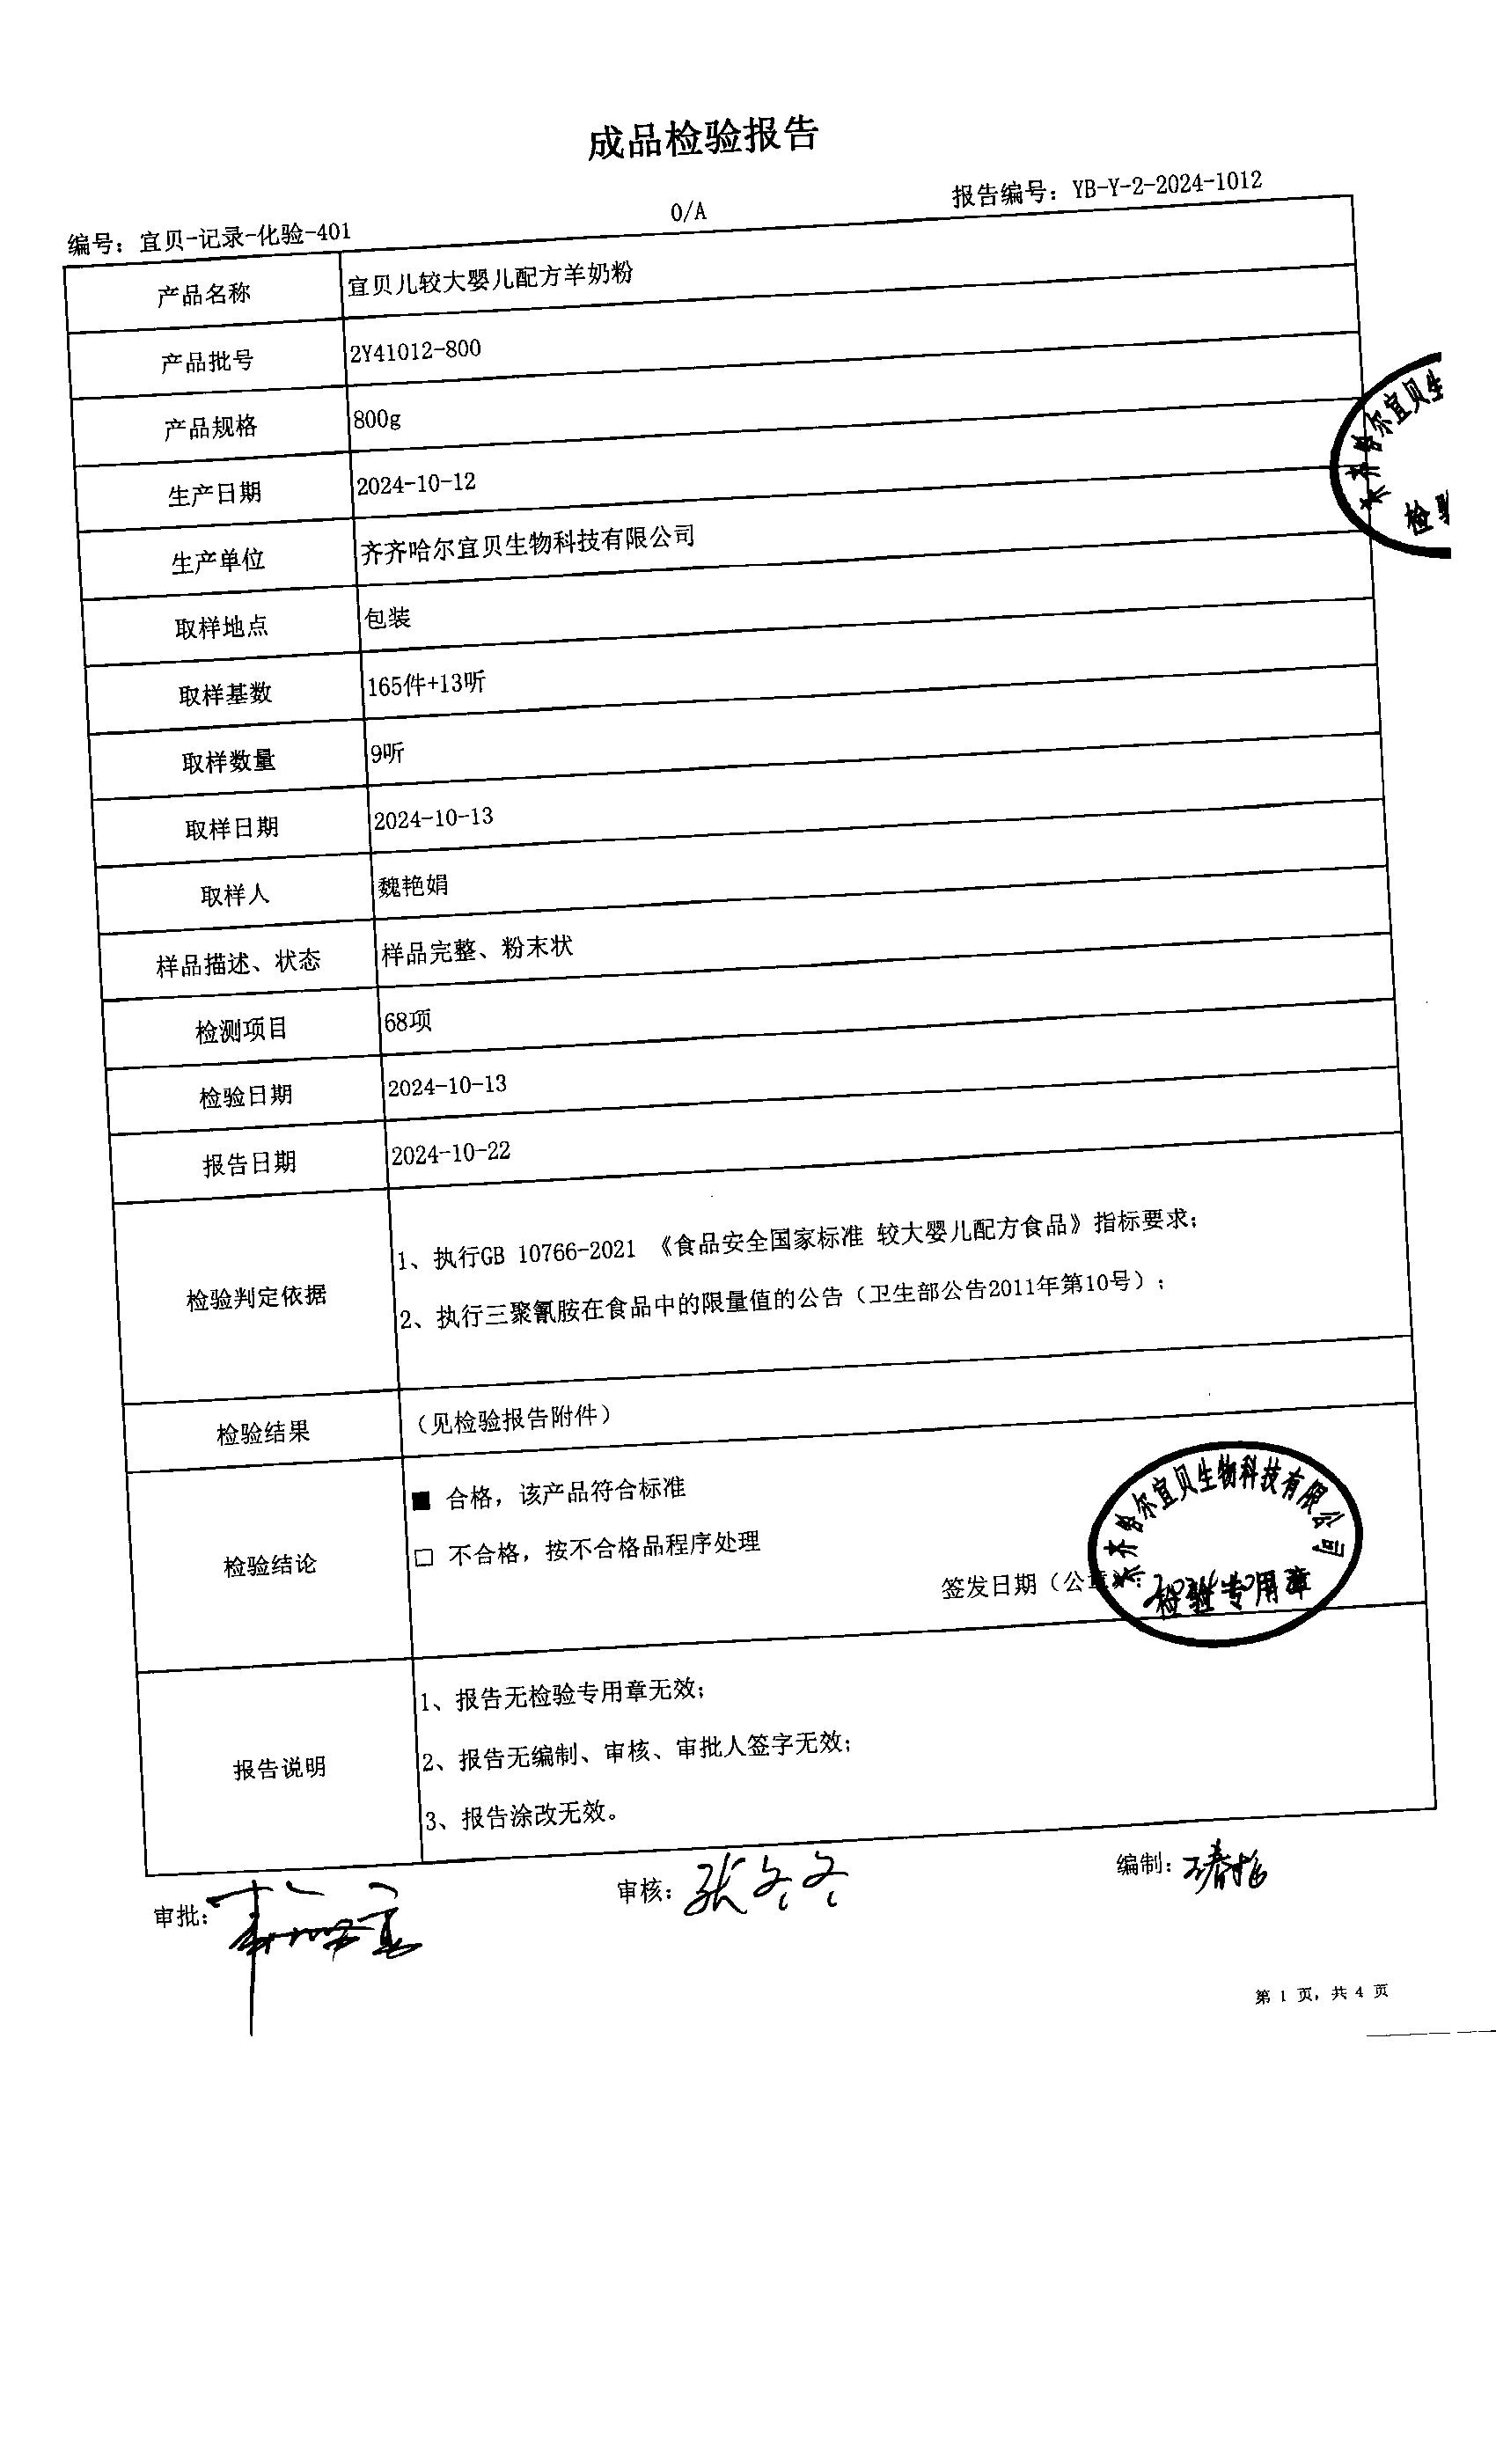 成品检验报告
编号：宜贝-记录-化验-401
0/A
报告编号：YB-Y-2-2024-1012
产品名称 宜贝儿较大婴儿配方羊奶粉
产品批号 2Y41012-800
产品规格 800g
生产日期 2024-10-12
生产单位 齐齐哈尔宜贝生物科技有限公司
取样地点 包装
取样基数 165件+13听
取样数量 9听
取样日期 2024-10-13
取样人 魏艳娟
样品描述、状态 样品完整、粉末状
检测项目 68项
检验日期 2024-10-13
报告日期 2024-10-22
检验判定依据
1、执行GB 10766-2021 《食品安全国家标准 较大婴儿配方食品》指标要求；
2、执行三聚氰胺在食品中的限量值的公告（卫生部公告2011年第10号）；
检验结果 （见检验报告附件）
检验结论
■ 合格，该产品符合标准
□ 不合格，按不合格品程序处理
签发日期（公章）：
齐齐哈尔宜贝生物科技有限公司
检验专用章
齐齐哈尔宜贝生
检验
报告说明
1、报告无检验专用章无效；
2、报告无编制、审核、审批人签字无效；
3、报告涂改无效。
审批：
审核：张冬冬
编制：
第 1 页，共 4 页